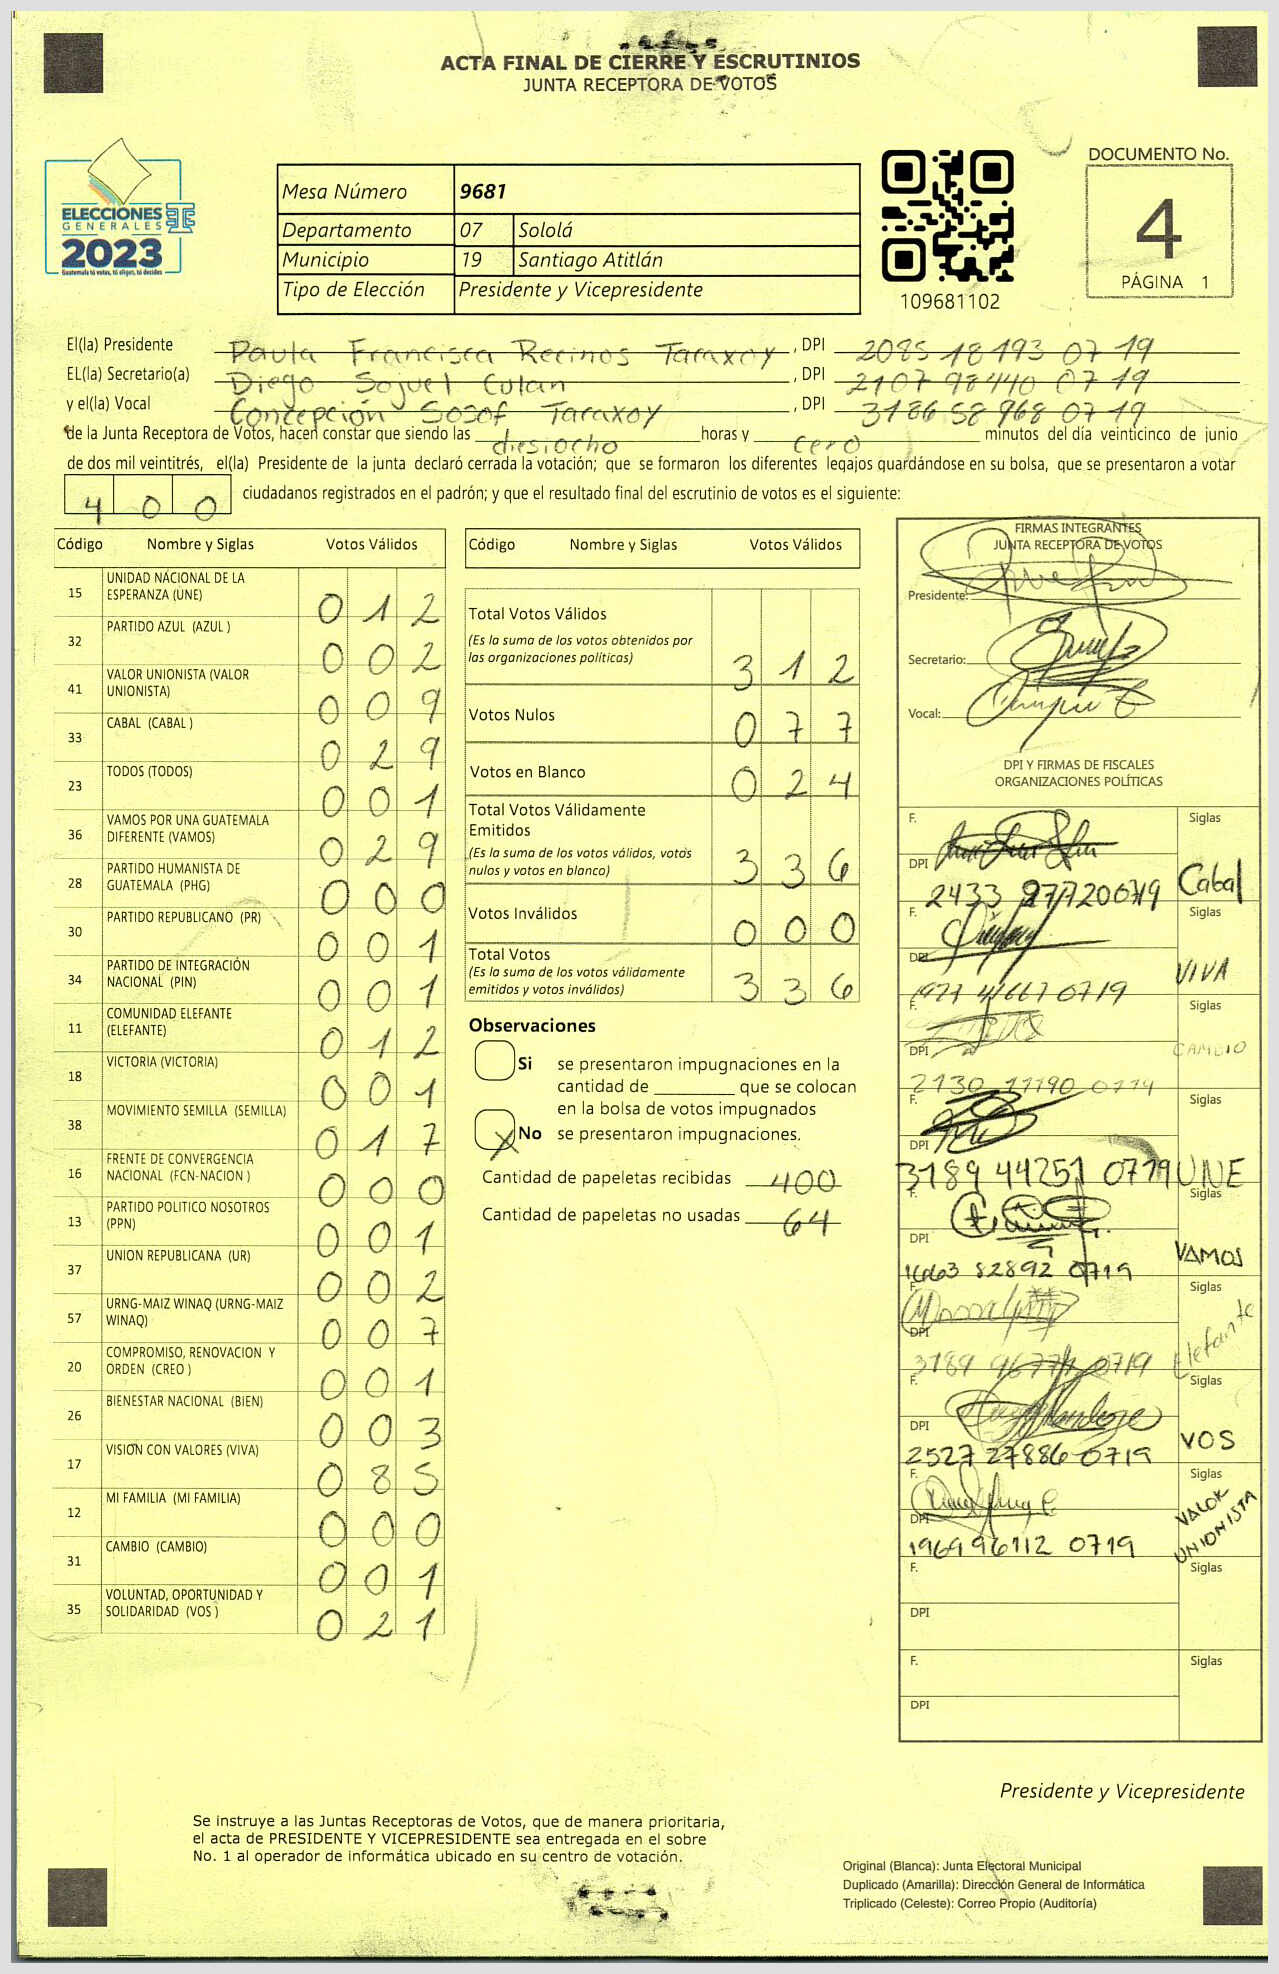 ACTA FINAL DE CIERRE Y ESCRUTINIOS
JUNTA RECEPTORA DE VOTOS
ELECCIONES
GENERALES
2023
Guatemala tú votas, tú eliges, tú decides
Mesa Número 9681
Departamento 07 Sololá
Municipio 19 Santiago Atitlán
Tipo de Elección Presidente y Vicepresidente
109681102
DOCUMENTO No.
4
PÁGINA 1
El(la) Presidente Paula Francisca Recinos Taraxoy, DPI 2085 18193 07 19
EL(la) Secretario(a) Diego Sojuel Culan, DPI 2107 98440 07 19
y el(la) Vocal Concepción Sosof Taraxoy, DPI 3186 58 968 07 19
de la Junta Receptora de Votos, hacen constar que siendo las diesiocho horas y cero minutos del día veinticinco de junio
de dos mil veintitrés, el(la) Presidente de la junta declaró cerrada la votación; que se formaron los diferentes legajos guardándose en su bolsa, que se presentaron a votar
4 0 0 ciudadanos registrados en el padrón; y que el resultado final del escrutinio de votos es el siguiente:
Código Nombre y Siglas Votos Válidos
15 UNIDAD NACIONAL DE LA ESPERANZA (UNE) 0 1 2
32 PARTIDO AZUL (AZUL ) 0 0 2
41 VALOR UNIONISTA (VALOR UNIONISTA) 0 0 9
33 CABAL (CABAL ) 0 2 9
23 TODOS (TODOS) 0 0 1
36 VAMOS POR UNA GUATEMALA DIFERENTE (VAMOS) 0 2 9
28 PARTIDO HUMANISTA DE GUATEMALA (PHG) 0 0 0
30 PARTIDO REPUBLICANO (PR) 0 0 1
34 PARTIDO DE INTEGRACIÓN NACIONAL (PIN) 0 0 1
11 COMUNIDAD ELEFANTE (ELEFANTE) 0 1 2
18 VICTORIA (VICTORIA) 0 0 1
38 MOVIMIENTO SEMILLA (SEMILLA) 0 1 7
16 FRENTE DE CONVERGENCIA NACIONAL (FCN-NACION ) 0 0 0
13 PARTIDO POLITICO NOSOTROS (PPN) 0 0 1
37 UNION REPUBLICANA (UR) 0 0 2
57 URNG-MAIZ WINAQ (URNG-MAIZ WINAQ) 0 0 7
20 COMPROMISO, RENOVACION Y ORDEN (CREO ) 0 0 1
26 BIENESTAR NACIONAL (BIEN) 0 0 3
17 VISION CON VALORES (VIVA) 0 8 5
12 MI FAMILIA (MI FAMILIA) 0 0 0
31 CAMBIO (CAMBIO) 0 0 1
35 VOLUNTAD, OPORTUNIDAD Y SOLIDARIDAD (VOS ) 0 2 1
Código Nombre y Siglas Votos Válidos
Total Votos Válidos
(Es la suma de los votos obtenidos por
las organizaciones políticas) 3 1 2
Votos Nulos 0 7 7
Votos en Blanco 0 2 4
Total Votos Válidamente
Emitidos
(Es la suma de los votos válidos, votos
nulos y votos en blanco) 3 3 6
Votos Inválidos 0 0 0
Total Votos
(Es la suma de los votos válidamente
emitidos y votos inválidos) 3 3 6
Observaciones
Si se presentaron impugnaciones en la
cantidad de que se colocan
en la bolsa de votos impugnados
X No se presentaron impugnaciones.
Cantidad de papeletas recibidas 400
Cantidad de papeletas no usadas 64
FIRMAS INTEGRANTES
JUNTA RECEPTORA DE VOTOS
Presidente:
Secretario:
Vocal:
DPI Y FIRMAS DE FISCALES
ORGANIZACIONES POLÍTICAS
F. Siglas
DPI 2433 27720 0719 Cabal
F. Siglas
DPI 1977 41667 0719 VIVA
F. Siglas
DPI 2130 CAMBIO
F. Siglas
DPI 3189 44251 0719 UNE
F. Siglas
DPI 1663 82892 0719 VAMOS
F. Siglas
DPI 3189 0719 Elefante
F. Siglas
DPI 2527 27886 0719 VOS
F. Siglas
DPI 1969 96112 0719 VALOR UNIONISTA
F. Siglas
DPI
F. Siglas
DPI
Presidente y Vicepresidente
Se instruye a las Juntas Receptoras de Votos, que de manera prioritaria,
el acta de PRESIDENTE Y VICEPRESIDENTE sea entregada en el sobre
No. 1 al operador de informática ubicado en su centro de votación.
Original (Blanca): Junta Electoral Municipal
Duplicado (Amarilla): Dirección General de Informática
Triplicado (Celeste): Correo Propio (Auditoría)